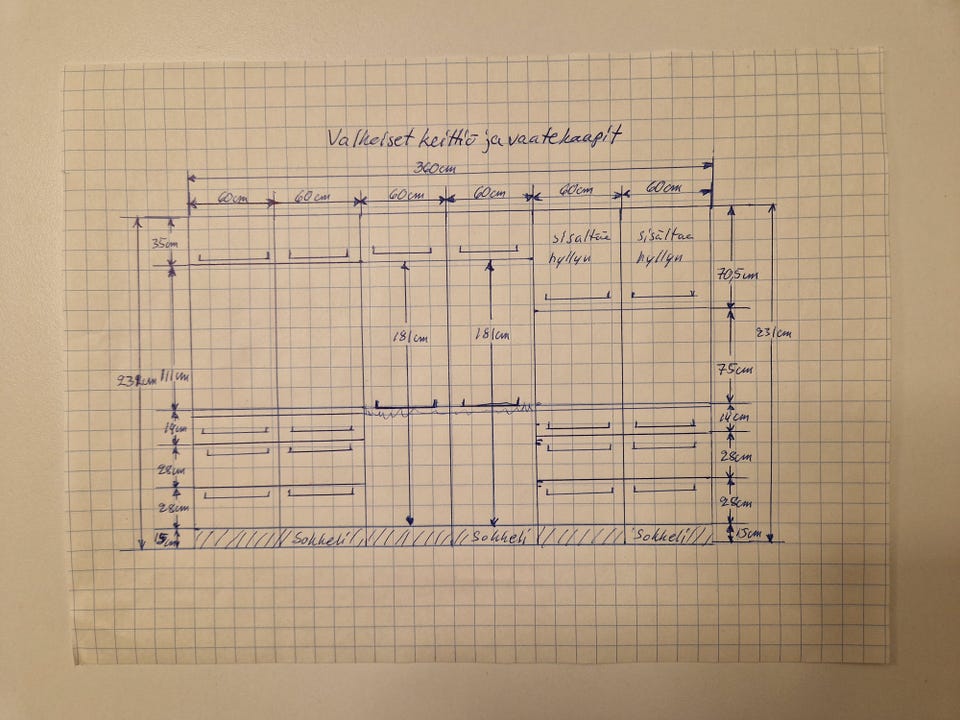 Valkoiset keittiö ja vaatekaapit
360cm
60cm 60cm 60cm 60cm 60cm 60cm
35cm
sisältää hyllyn
sisältää hyllyn
70,5cm
181cm 181cm
231cm
231cm 111cm
75cm
14cm
14cm
28cm
28cm
28cm
28cm
15cm
Sokkeli Sokkeli Sokkeli
15cm